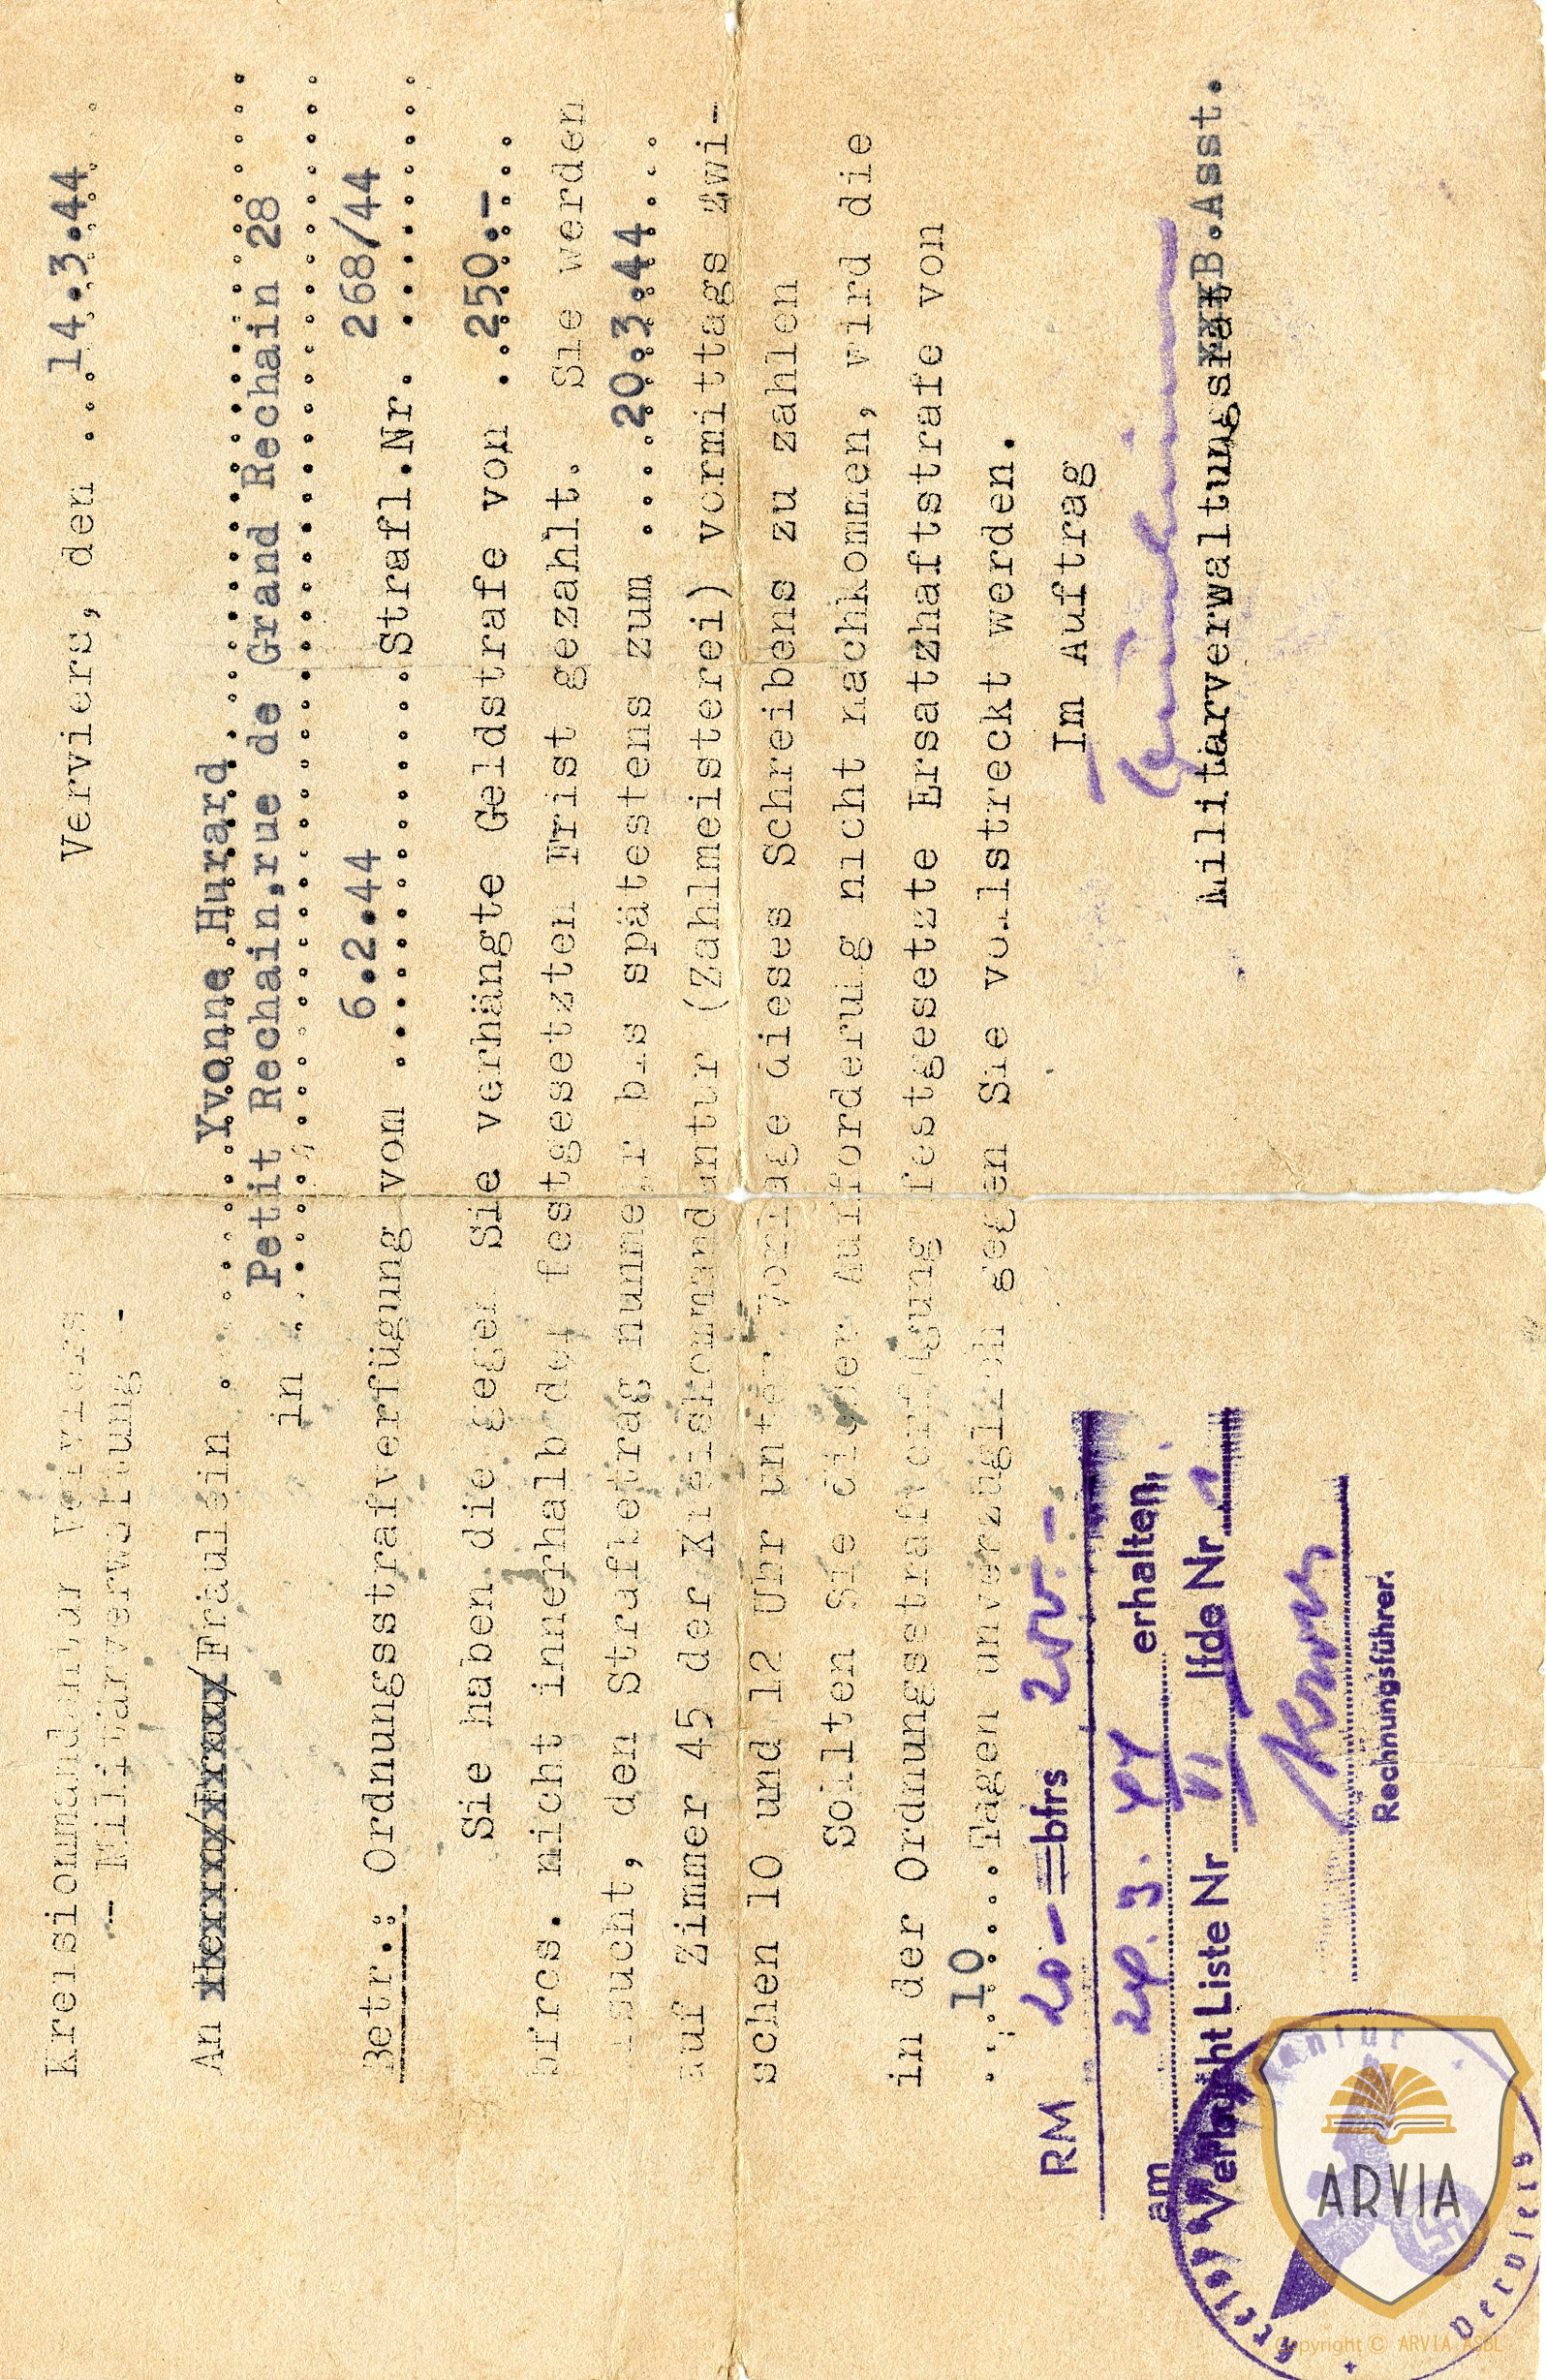 Kreiskommandantur Verviers
- Militärverwaltung -
Verviers, den ... 14.3.44
An Herrn/Frau/Fräulein .. Yvonne Hurard
Petit Rechain,rue de Grand Rechain 28
in
6.2.44 268/44
Betr.: Ordnungsstrafverfügung vom .......... Strafl.Nr. ..........
Sie haben die gegen Sie verhängte Geldstrafe von ..250.-...
bfrcs. nicht innerhalb der festgesetzten Frist gezahlt. Sie werden
sucht, den Strafbetrag nunmehr bis spätestens zum ....20.3.44....
auf Zimmer 45 der Kreiskommandantur (Zahlmeisterei) vormittags zwi-
schen 10 und 12 Uhr unter Vorlage dieses Schreibens zu zahlen
Sollten Sie dieser Aufforderung nicht nachkommen, wird die
in der Ordnungsstrafverfügung festgesetzte Ersatzhaftstrafe von
...10.... Tagen unverzüglich gegen Sie vollstreckt werden.
Im Auftrag
Militärverwaltungsrat B.Asst.
RM 20- =bfrs 200.-
am 24.3.44 erhalten.
Verbucht Liste Nr VI lfde Nr 1
Rechnungsführer.
Verviers
ARVIA
Copyright © ARVIA ASBL